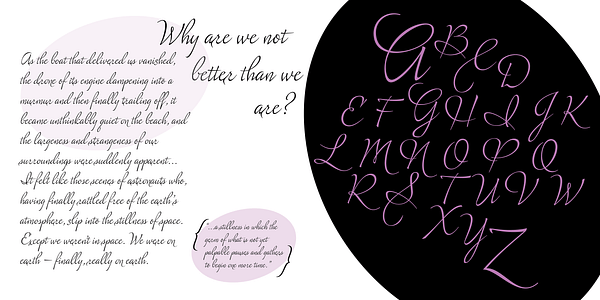 Why are we not
better than we
are?
As the boat that delivered us vanished,
the drone of its engine dampening into a
murmur and then finally trailing off, it
became unthinkably quiet on the beach, and
the largeness and strangeness of our
surroundings were suddenly apparent...
It felt like those scenes of astronauts who,
having finally rattled free of the earth's
atmosphere, slip into the stillness of space.
Except we weren't in space. We were on
earth — finally, really on earth.
{ "...a stillness in which the
germ of what is not yet
palpable pauses and gathers
to begin one more time." }
A B C D
E F G H I J K
L M N O P Q
R S T U V W
X Y Z